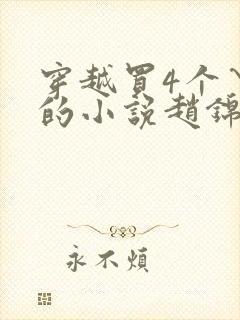 穿越買4个
的小说趙錦
永不煩